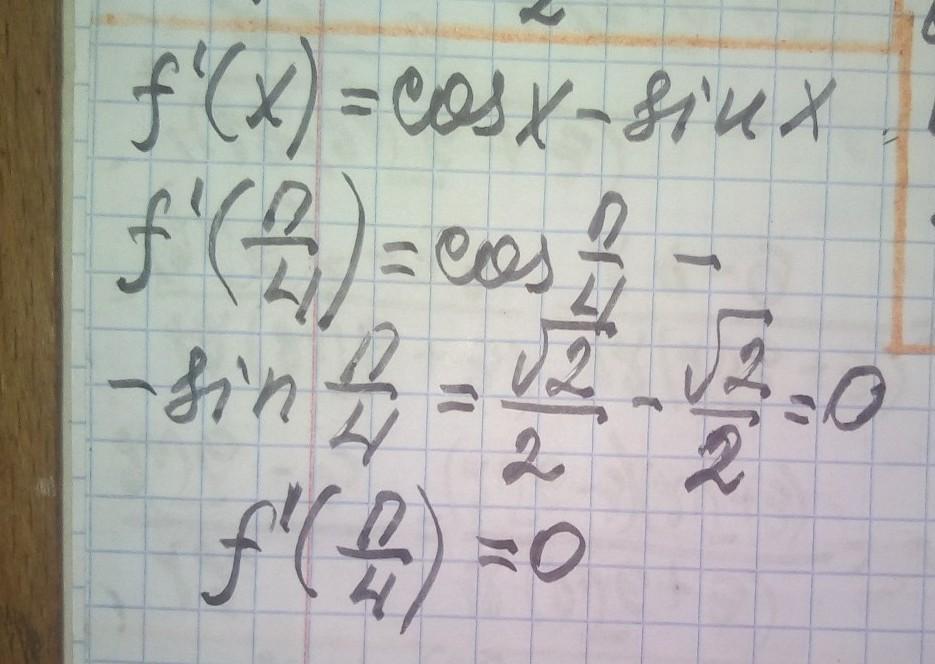 2
f'(x) = cos x - sin x
f'(π/4) = cos π/4 -
- sin π/4 = √2/2 - √2/2 = 0
f'(π/4) = 0